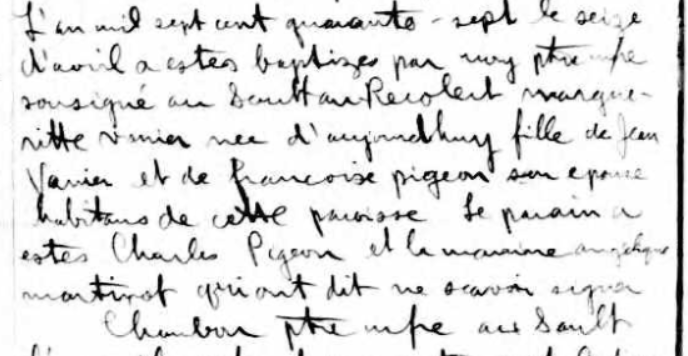 L'an mil sept cent quarante-sept le seize
d'avril a estes baptizes par moy ptre
sousigné au Sault au Recolect margue-
ritte vanier nee d'aujourdhuy fille de Jean
Vanier et de francoise pigeon son epouse
habitans de cette paroisse le parain a
estes Charles Pigeon et la maraine angelique
martinot qui ont dit ne scavoir signer
Chambon ptre au Sault